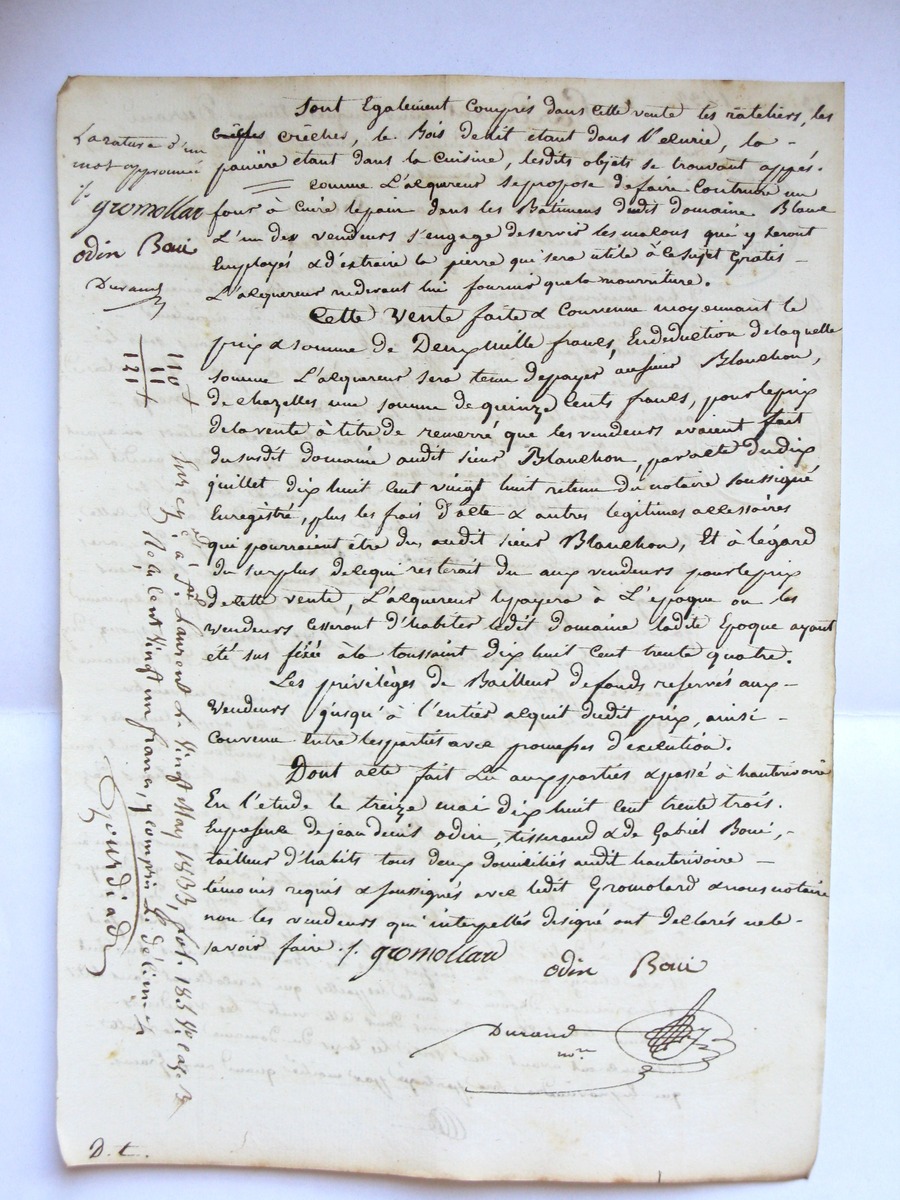 Sont Egalement Compris dans Cette vente les rateliers, les
creches, le Bois de lit étant dans l'ecurie, la -
panière étant dans la cuisine, lesdits objets se trouvant appés.
comme L'alquereur se propose de faire Contruire un
four à Cuire lepain dans les Batimens dudit domaine Blanc
L'un des vendeurs s'engage de servir les maçons qui y seront
Employés & d'extraire la pierre qui sera utile à ce sujet Gratis -
L'alquereur ne devant lui fournir que la nourriture.
Cette Vente faite & Convenue moyennant le
prix & somme de Deux mille francs, En deduction de laquelle
somme L'alquereur sera tenu de payer au sieur Blanchon,
de chazelles une somme de quinze Cents francs, pour le prix
de la vente à titre de remerré que les vendeurs avaient fait
du susdit domaine audit sieur Blanchon, par acte du dix
juillet dix huit cent vingt huit retenu du notaire soussigné
Enregistré, plus les frais d'acte & autres legitimes accessoires
qui pourraient être dus audit sieur Blanchon, Et à légard
du surplus de ce qui resterait du aux vendeurs pour le prix
de cette vente, L'alquereur le payera à L'époque ou les
vendeurs cesseront d'habiter ledit domaine ladite Epoque ayant
été sus fixée à la toussaint dix huit Cent trente quatre.
Les privilèges de Bailleur de fonds reservés aux -
vendeurs jusqu'à l'entier alquit dudit prix, ainsi -
Convenu Entre les parties avec promesses d'execution.
Dont acte fait Lu aux parties & passé à hauterivoire
En l'étude le treize mai dix huit cent trente trois.
En presence de jean denis odin, tisserand & de Gabriel Boué, -
tailleur d'habits tous deux domiciliés audit hauterivoire -
témoins requis & soussignés avec ledit Gromolard & nous notaire
non les vendeurs qui interpellés de signé ont declarés ne le -
savoir faire ./. gromollard
odin Boui
Durand
nore
La rature d'un
mot approuvée
./. gromollar
odin Boui
Durand
110
11
121
Laurent L. Vingt May 1833, fol. 185 Vo. Case
Cent Vingt un francs, y compris le décime
Gourdiad
D. t.